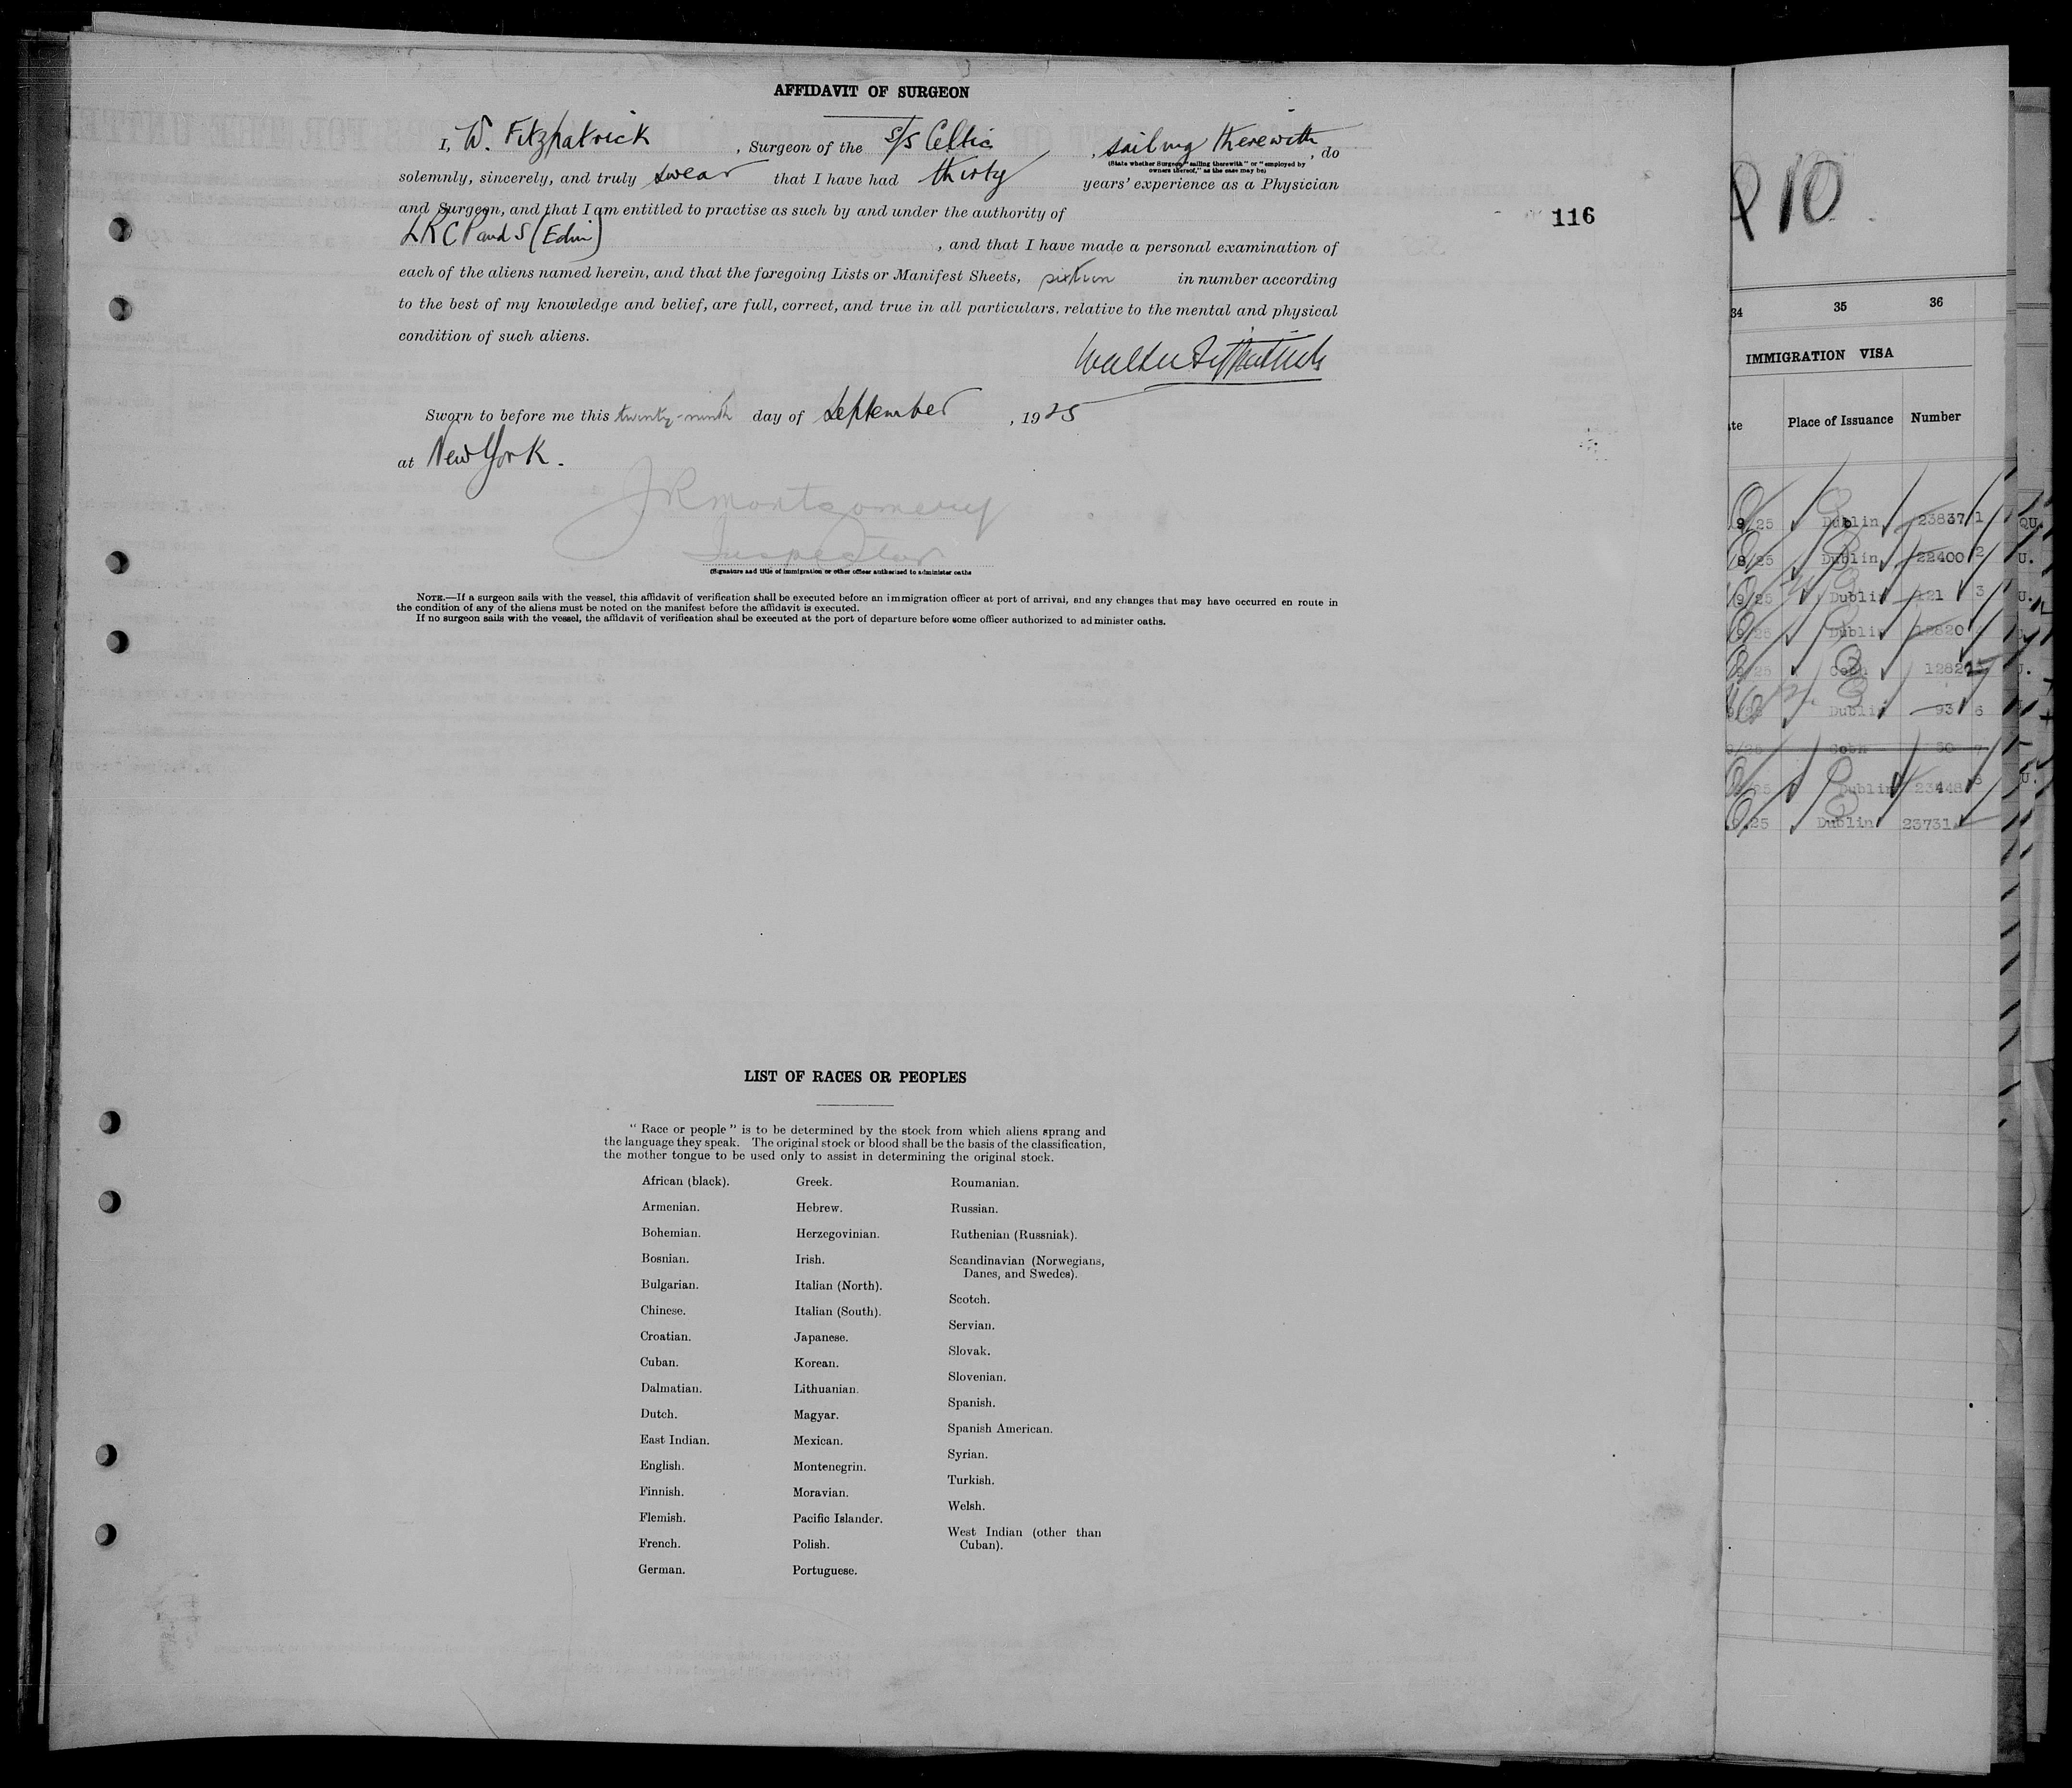 AFFIDAVIT OF SURGEON
I, W. Fitzpatrick, Surgeon of the s/s Celtic, sailing therewith, do
(State whether Surgeon "sailing therewith" or "employed by
owners thereof," as the case may be)
solemnly, sincerely, and truly swear that I have had thirty years' experience as a Physician
and Surgeon, and that I am entitled to practise as such by and under the authority of
LRCP and S (Edin), and that I have made a personal examination of
each of the aliens named herein, and that the foregoing Lists or Manifest Sheets, sixteen in number according
to the best of my knowledge and belief, are full, correct, and true in all particulars. relative to the mental and physical
condition of such aliens.
Walter Fitzpatrick
Sworn to before me this twenty-ninth day of September, 1925
at New York.
J R Montgomery
Inspector
(Signature and title of immigration or other officer authorized to administer oaths
NOTE.—If a surgeon sails with the vessel, this affidavit of verification shall be executed before an immigration officer at port of arrival, and any changes that may have occurred en route in
the condition of any of the aliens must be noted on the manifest before the affidavit is executed.
If no surgeon sails with the vessel, the affidavit of verification shall be executed at the port of departure before some officer authorized to administer oaths.
116
LIST OF RACES OR PEOPLES
" Race or people " is to be determined by the stock from which aliens sprang and
the language they speak. The original stock or blood shall be the basis of the classification,
the mother tongue to be used only to assist in determining the original stock.
African (black).
Armenian.
Bohemian.
Bosnian.
Bulgarian.
Chinese.
Croatian.
Cuban.
Dalmatian.
Dutch.
East Indian.
English.
Finnish.
Flemish.
French.
German.
Greek.
Hebrew.
Herzegovinian.
Irish.
Italian (North).
Italian (South).
Japanese.
Korean.
Lithuanian.
Magyar.
Mexican.
Montenegrin.
Moravian.
Pacific Islander.
Polish.
Portuguese.
Roumanian.
Russian.
Ruthenian (Russniak).
Scandinavian (Norwegians,
Danes, and Swedes).
Scotch.
Servian.
Slovak.
Slovenian.
Spanish.
Spanish American.
Syrian.
Turkish.
Welsh.
West Indian (other than
Cuban).
10
34 35 36
IMMIGRATION VISA
Place of Issuance Number
9/25 Dublin 23837 1 QU.
8/25 Dublin 22400 2 U.
9/25 Dublin 121 3 U.
/25 Dublin 12820
/25 Cobh 5 U.
Dublin 93 6
/25 Cobh 50 7
/25 Dublin 23448 8 U.
9.25 Dublin 23731